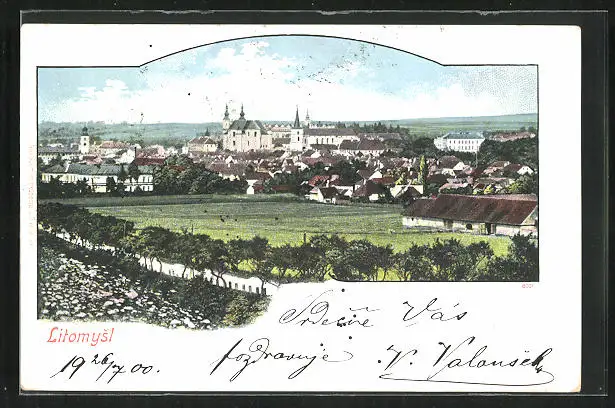 6001
Srdečně Vás
Litomyšl
pozdravuje V. Valoušek
19 26/7 00.